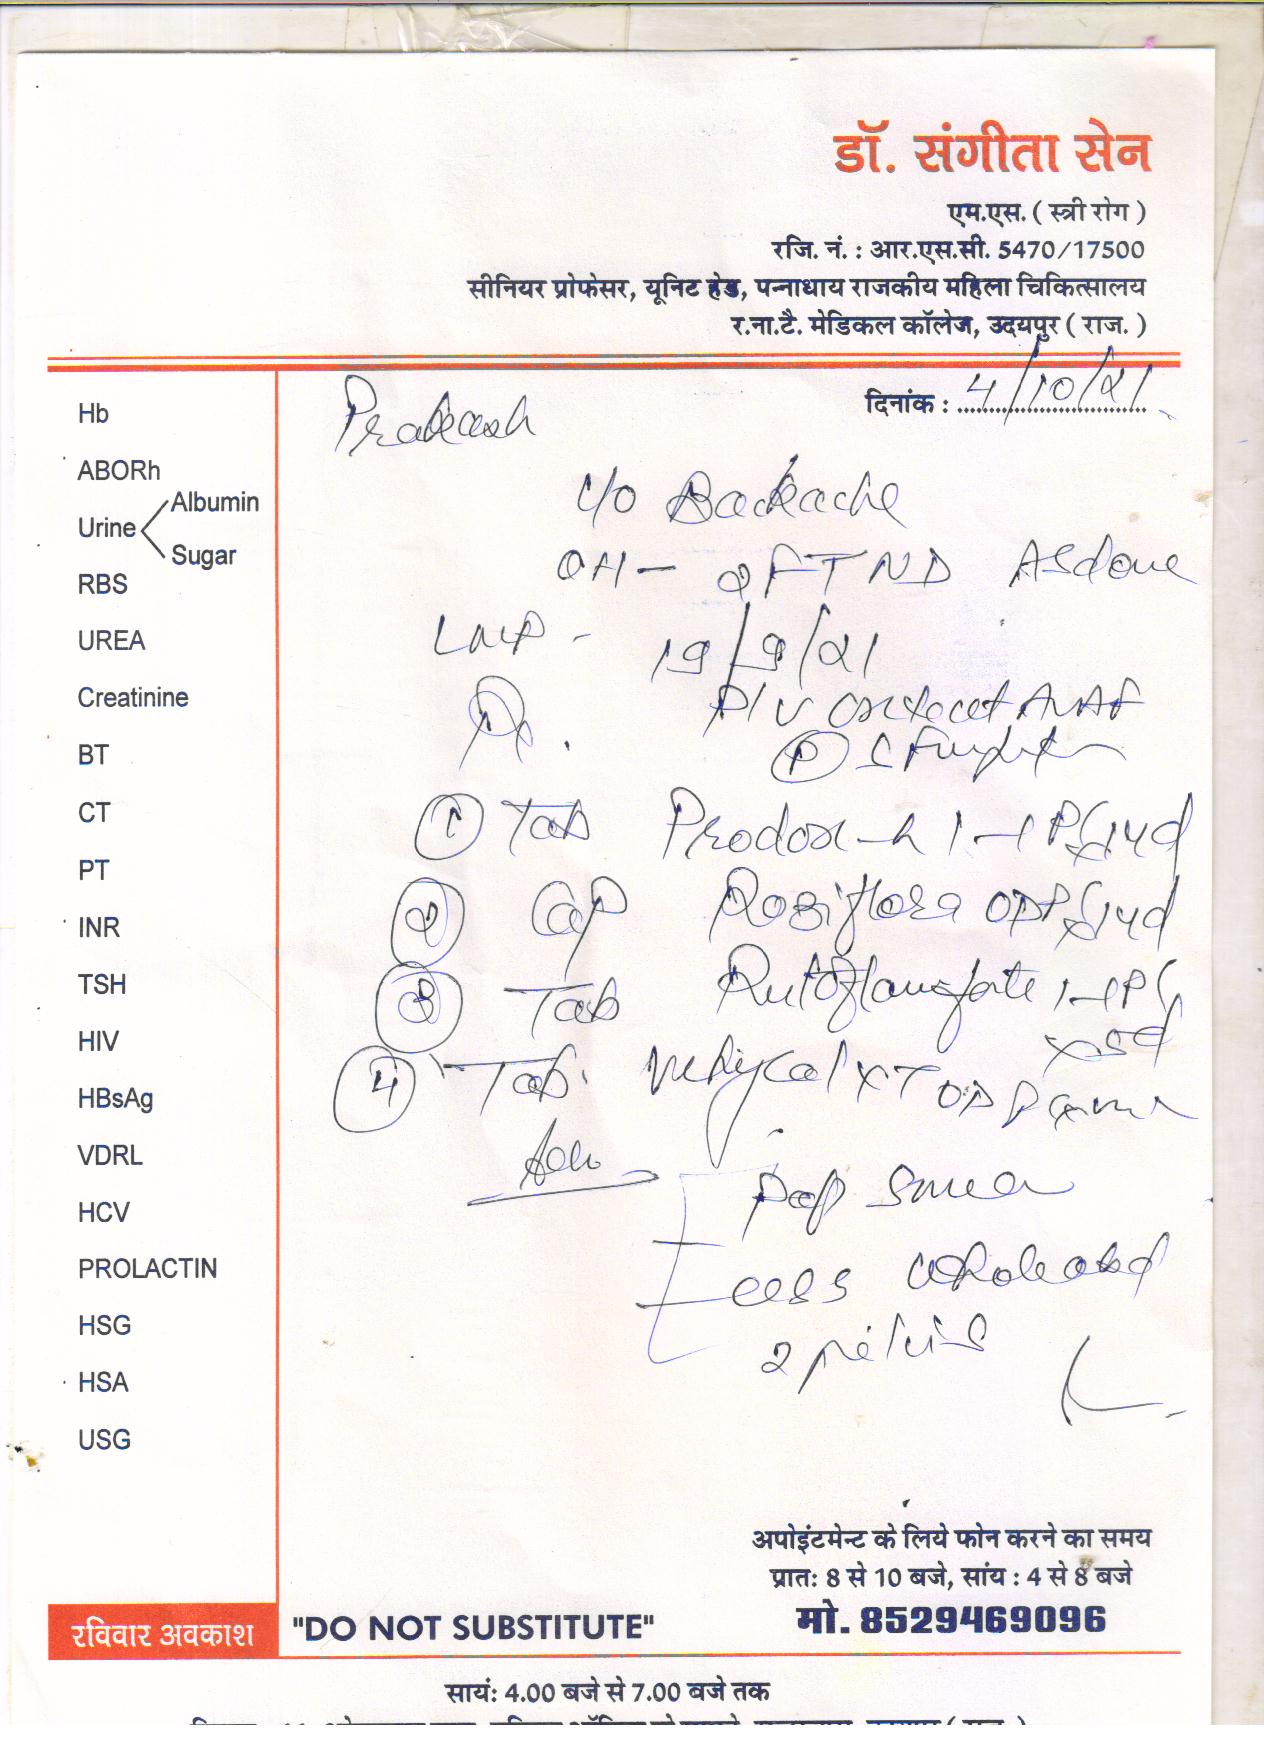 डॉ. संगीता सेन
एम.एस. ( स्त्री रोग )
रजि. नं. : आर.एस.सी. 5470/17500
सीनियर प्रोफेसर, यूनिट हेड, पन्नाधाय राजकीय महिला चिकित्सालय
र.ना.टै. मेडिकल कॉलेज, उदयपुर ( राज. )
दिनांक : 4/10/21
Prakash
Hb
ABORh
Urine Albumin
Sugar
RBS
UREA
Creatinine
BT
CT
PT
INR
TSH
HIV
HBsAg
VDRL
HCV
PROLACTIN
HSG
HSA
USG
c/o Backache
OH - 2 FTND
LMP - 19/9/21
P/V AVAF
① Tab 1-1 PC x 14d
② Cap OD PC x 14d
③ Tab 1-1 PC
x 5d
④ Tab. XT OD
Adv
Pap Smear
whole abd
2 pelvis
अपोइंटमेन्ट के लिये फोन करने का समय
प्रातः 8 से 10 बजे, सांय : 4 से 8 बजे
मो. 8529469096
रविवार अवकाश
"DO NOT SUBSTITUTE"
सायं: 4.00 बजे से 7.00 बजे तक